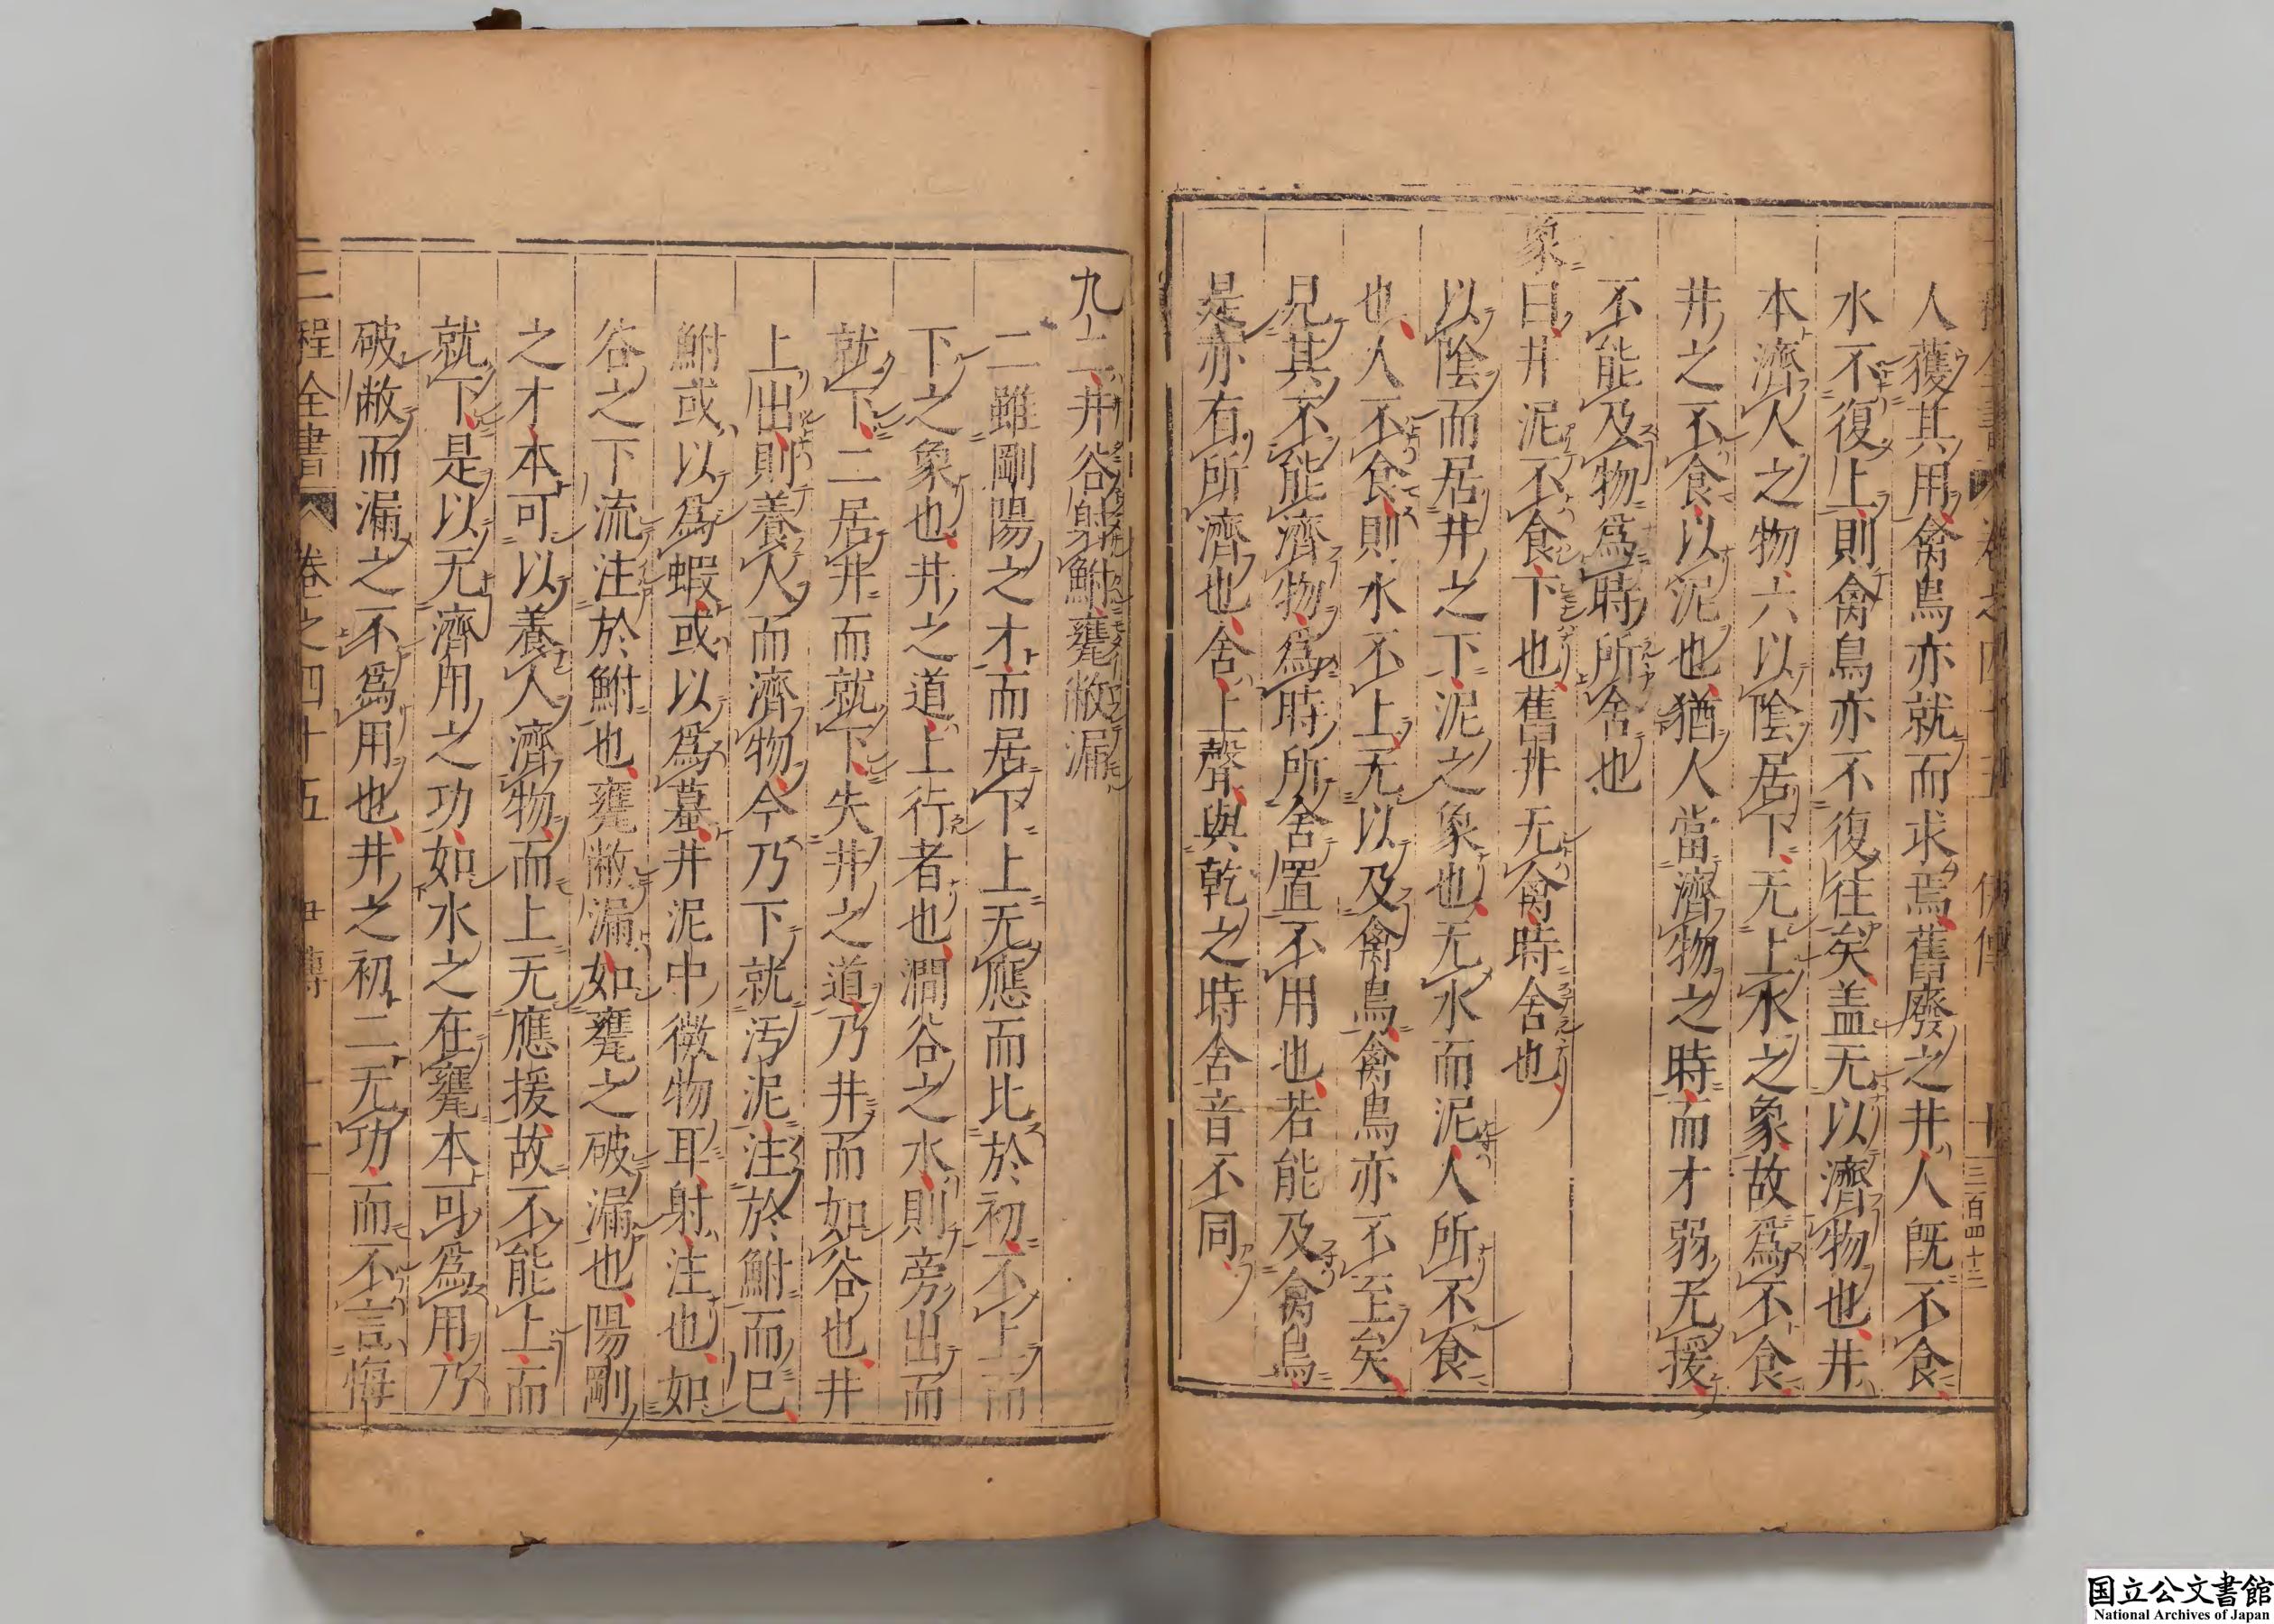 人獲其用禽鳥亦就而求焉舊廢之井人旣不食
水不復上則禽鳥亦不復往矣盖无以濟物也井
本濟人之物六以陰居下无上水之象故爲不食
井之不食以泥也猶人當濟物之時而才弱无援
不能及物爲時所舍也
象曰井泥不食下也舊井无禽時舍也
以陰而居井之下泥之象也无水而泥人所不食
也人不食則水不上无以及禽鳥禽鳥亦不至矣
見其不能濟物爲時所舍置不用也若能及禽鳥
是亦有所濟也舍上聲與乾之時舍音不同
九二井谷射鮒甕敝漏
二雖剛陽之才而居下上无應而比於初不上而
下之象也井之道上行者也澗谷之水則旁出而
就下二居井而就下失井之道乃井而如谷也井
上出則養人而濟物今乃下就汚泥注於鮒而已
鮒或以爲蝦或以爲蟇井泥中微物耳射注也如
谷之下流注於鮒也甕敝漏如甕之破漏也陽剛
之才本可以養人濟物而上无應援故不能上而
就下是以无濟用之功如水之在甕本可爲用乃
破敝而漏之不爲用也井之初二无功而不言悔
二程全書 卷之四十五
三百四十二
国立公文書館
National Archives of Japan